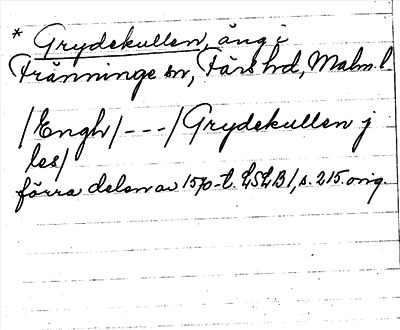 * Grydekullen, äng i
Tränninge sn, Färs hd, Malm. l.
/Engh/ --- / Grydekullen j
les/
förra delen av 1570-t. LSLB 1, s. 215. orig.